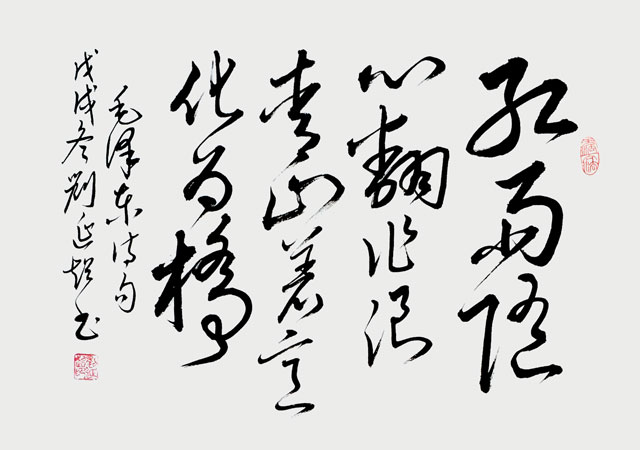 红雨随
心翻作浪
青山着意
化为橋
毛泽东诗句
戊戌冬劉延超书